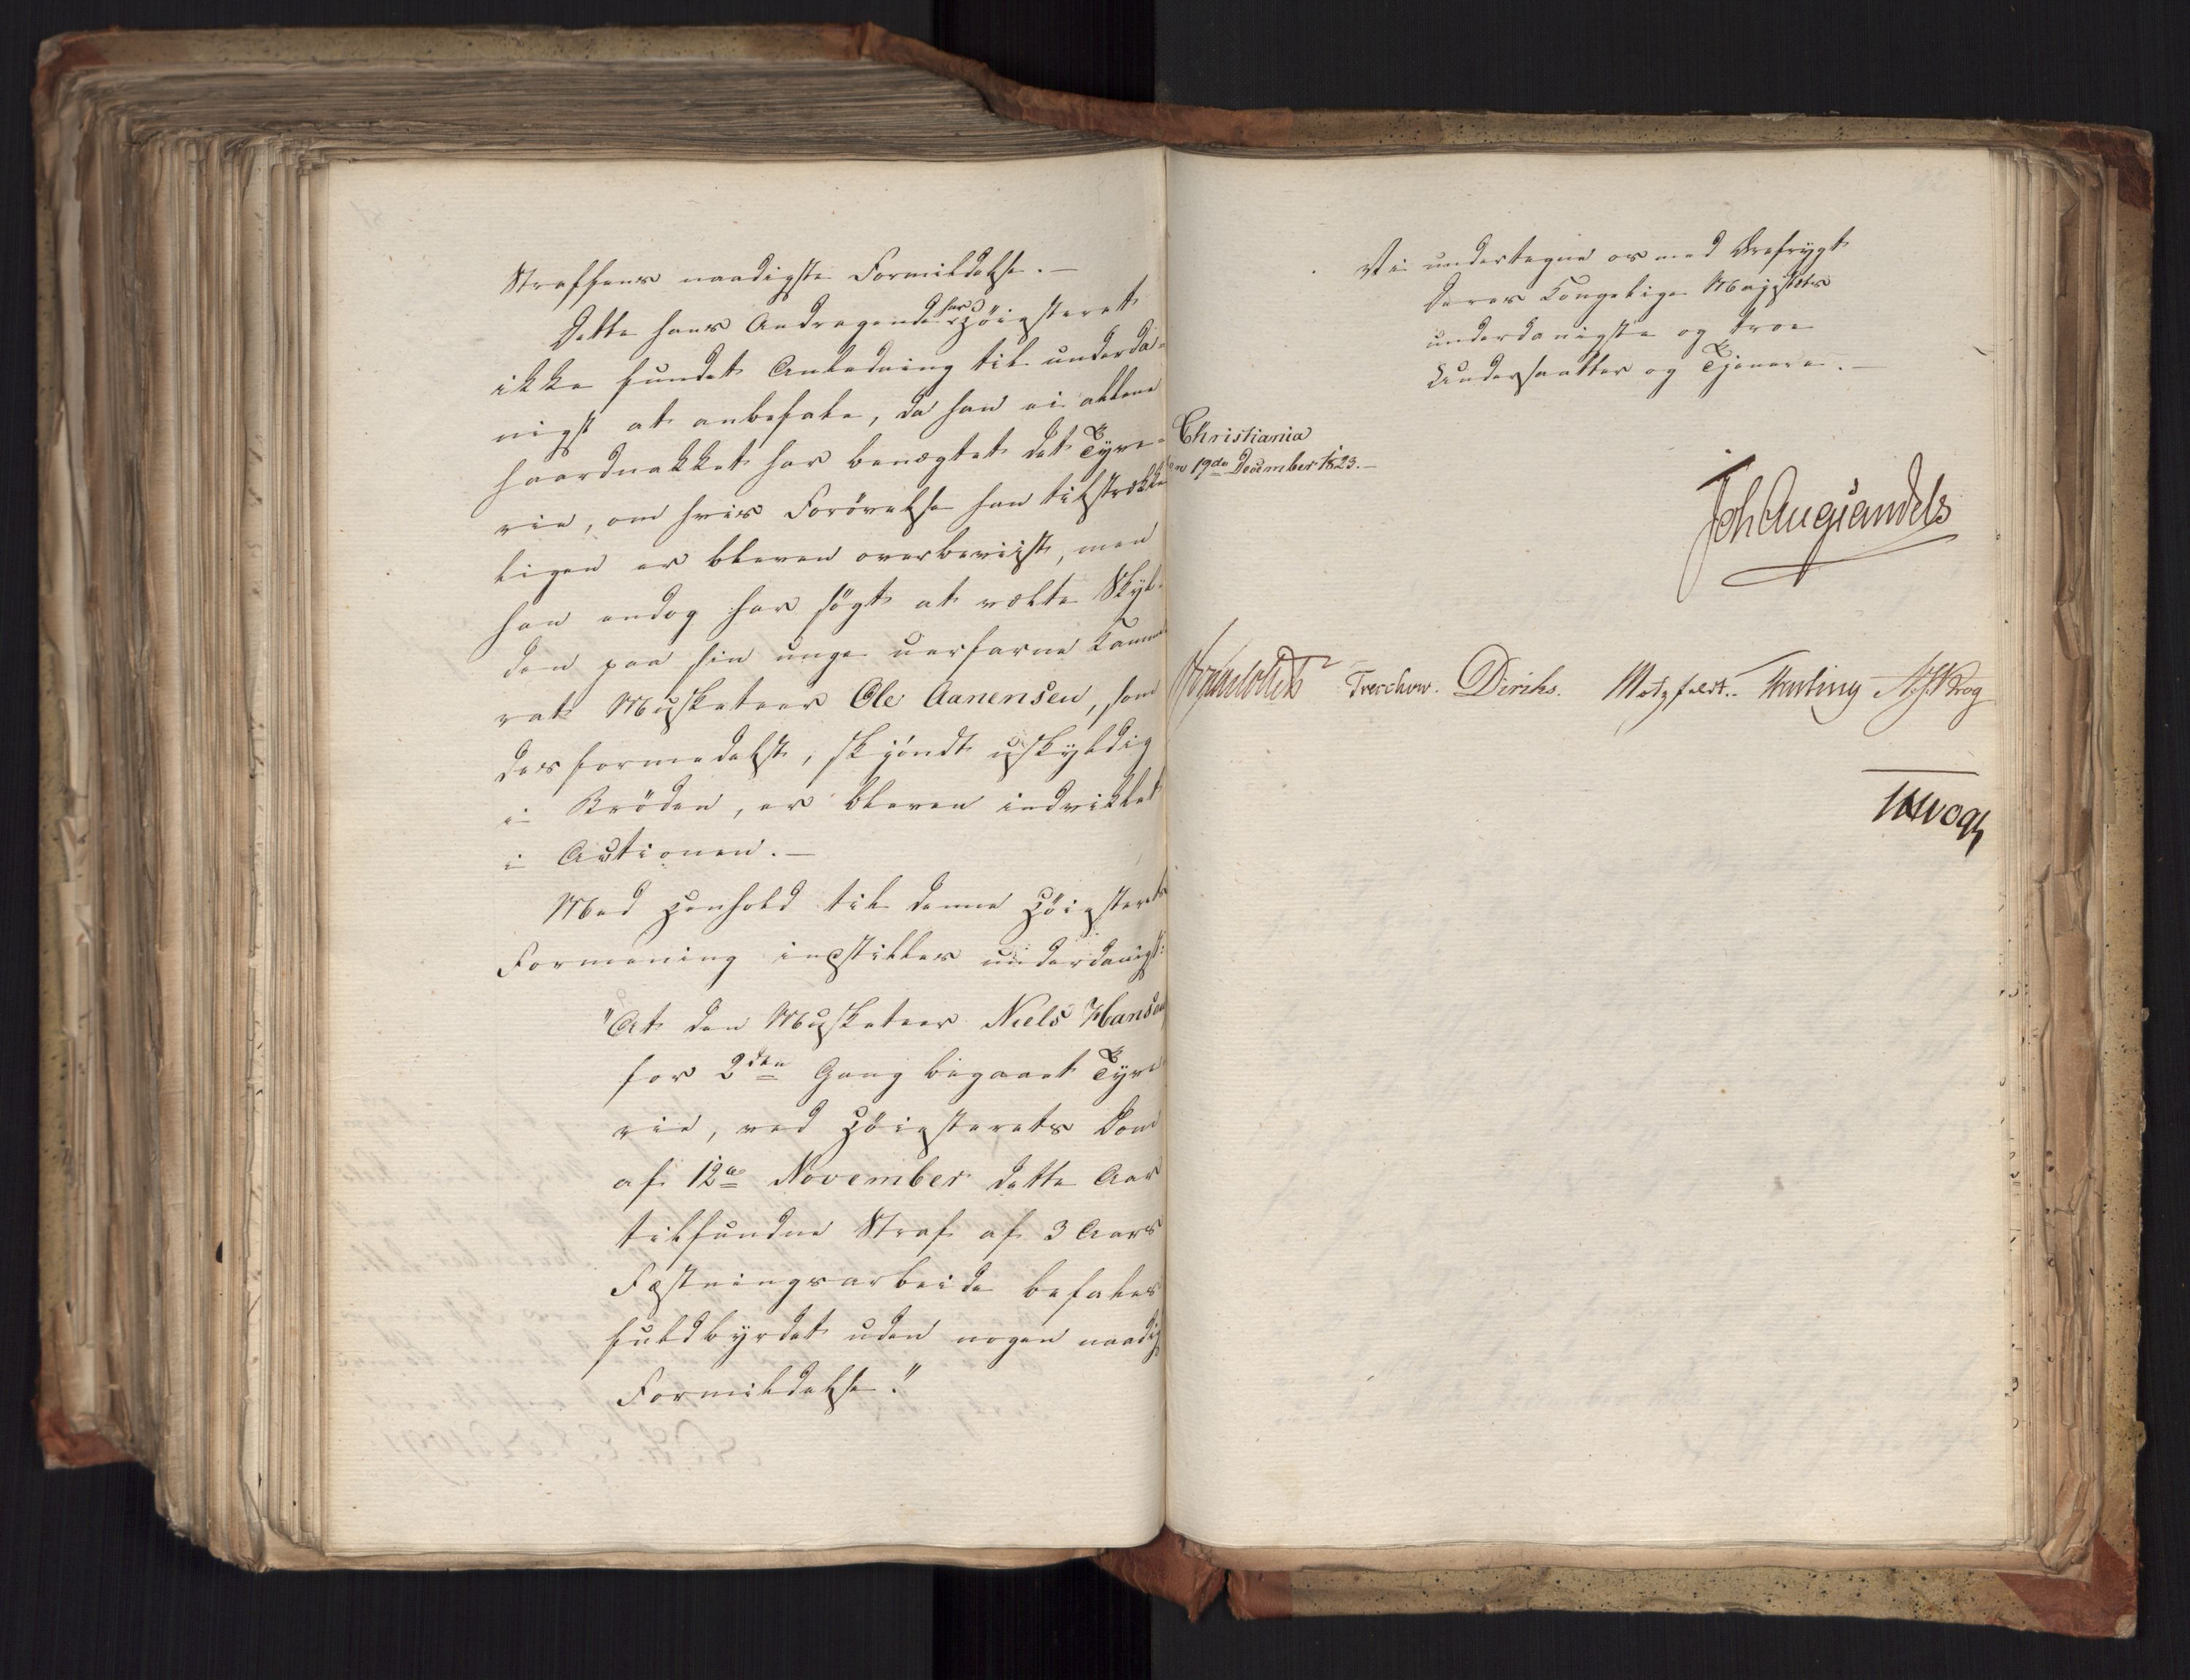 Straffens naadigste Formildelse. —
Dette hans Andragende har Höiesteret
ikke fundet Anledning til underda-
nigst at anbefale, da han ei allene
haardnakket har benægtet det Tyve-
rie, om hvis Forövelse han tilstrække
ligen er bleven overbeviist, men
han endog har sögt at vælte Skyl-
den paa sin unge uerfarne Kamme
rat Musketeer Ole Aanensen, som
derformedelst, skjöndt uskyldig
i Bröden, er bleven indviklet
i Actionen. —
Med Henhold til denne Höiesterets
Formening indstilles underdanigst:
"At den Musketeer Niels Hansen
for 2den Gang begaaet Tyve-
rie, ved Höiesterets Dom
af 12te November dette Aar
tilfundne Straf af 3 Aars
Fæstningsarbeide befales
fuldbyrdet uden nogen naadig
Formildelse."
Vi undertegne os med Ærefrygt
Deres Kongelige Majestæts
underdanigste og troe
Undersaatter og Tjenere. —
Christiania
den 19de December 1823. —
Joh Aug Sandels
Treschow. Diriks. Motzfeldt. N J Krog
Vogt